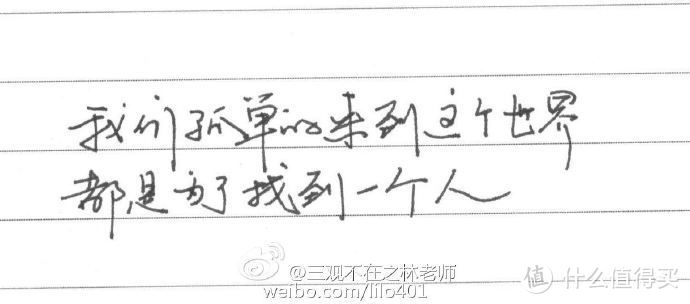 我们孤单的来到这个世界
都是为了找到一个人
@三观不在之林老师
weibo.com/lilo401
值 什么值得买